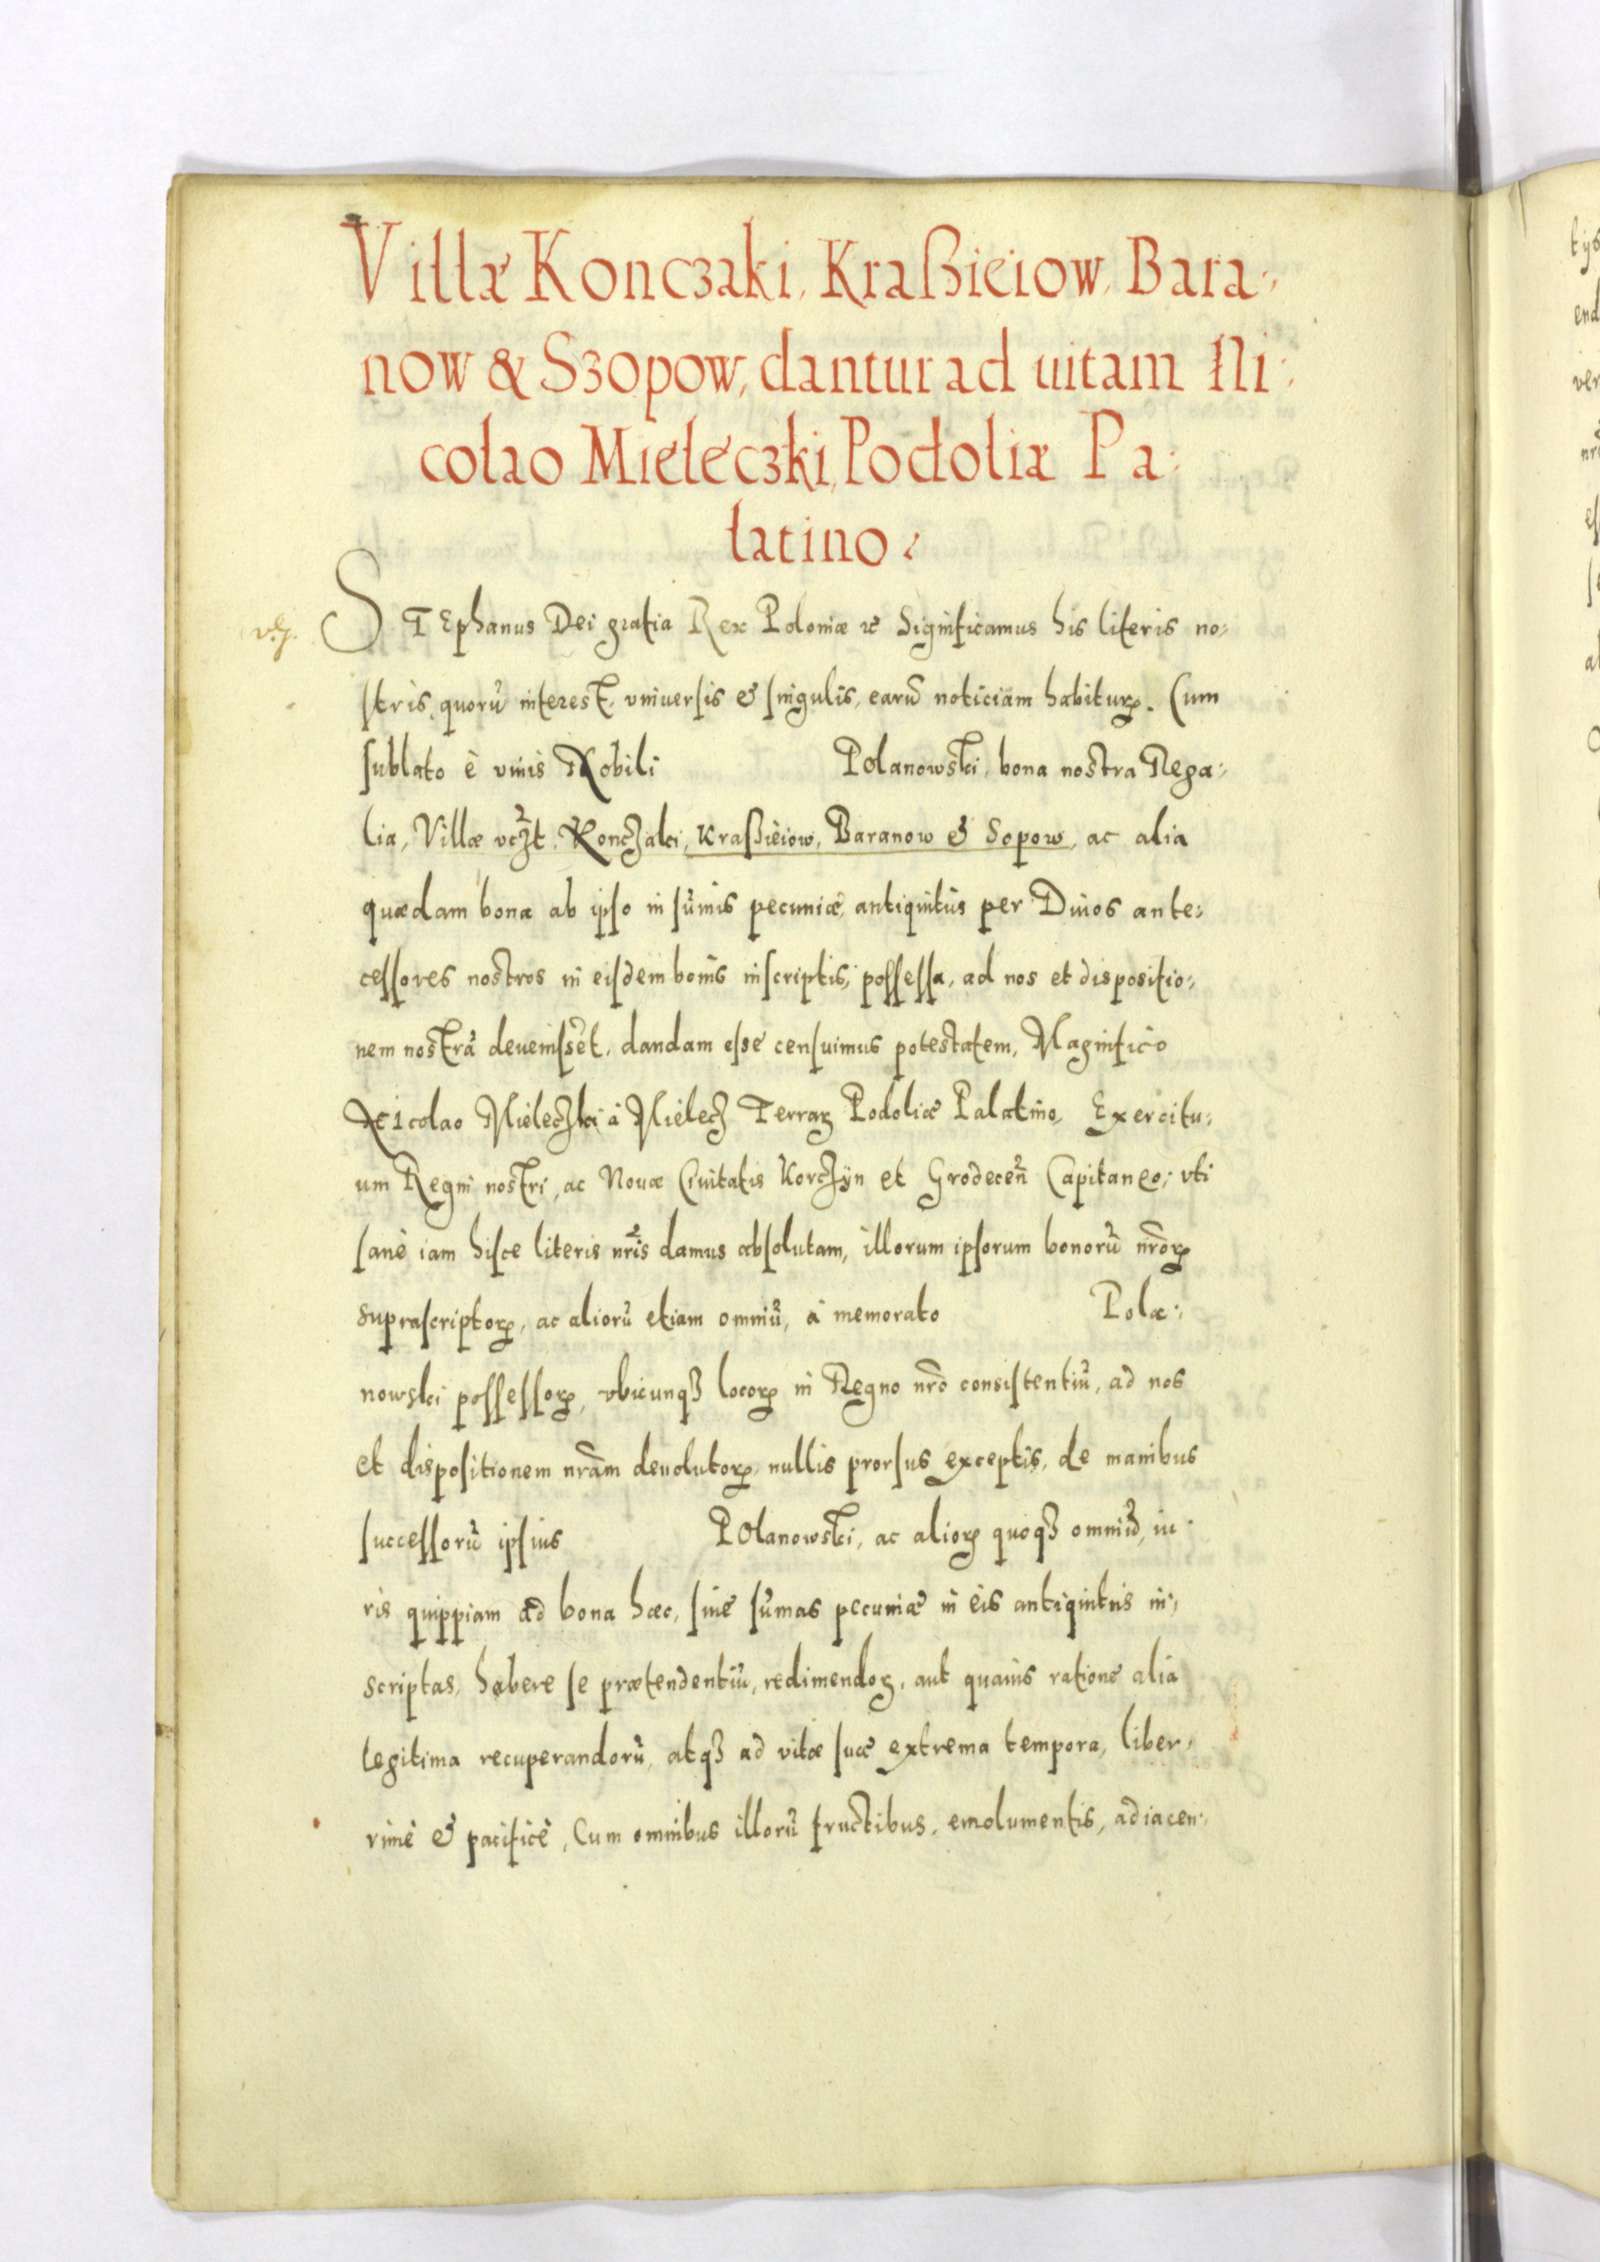 Villæ Konczaki, Kraßieiow, Bara-
now & Szopow, dantur ad uitam Ni-
colao Mieleczki, Podoliæ Pa-
latino.
STEphanus Dei gratia Rex Poloniæ ꝛc Significamus his literis no-
stris, quorū interest, vniuersis & singulis, earū noticiam habiturꝝ. Cum
sublato è viuis Nobili Polanowski, bona nostra Rega-
lia, Villæ vczt. Konczaki, Kraßieiow, Baranow & Sopow, ac alia
quædam bona ab ipso in sūmis pecuniæ, antiquitùs per Diuos ante-
cessores nostros in eisdem bonis inscriptis, possessa, ad nos et dispositio-
nem nostrā deuenissēt, dandam esse censuimus potestatem, Magnifico
Nicolao Mieleczki à Mielecz Terraꝝ Podoliæ Palatino, Exercitu-
um Regni nostri, ac Nouæ Ciuitatis Korczyn et Grodeceñ Capitaneo, vti
sanè iam hisce literis nr̃is damus absolutam, illorum ipsorum bonorū nr̃orꝝ
suprascriptorꝝ, ac aliorū etiam omniū, à memorato Pola-
nowski possessorꝝ, vbicunqȝ locorꝝ in Regno nr̃o consistentiū, ad nos
et dispositionem nr̃am deuolutorꝝ, nullis prorsus exceptis, de manibus
successorū ipsius POlanowski, ac aliorꝝ quoqȝ omniū, iu-
ris quippiam ad bona hæc, siue sūmas pecuniæ in eis antiquitus in-
scriptas, habere se prætendentiū, redimendoꝝ, aut quauis ratione alia
legitima recuperandorū, atqȝ ad vitæ suæ extrema tempora, liber-
rimè & pacificè, Cum omnibus illorū fructibus, emolumentis, adiacen-